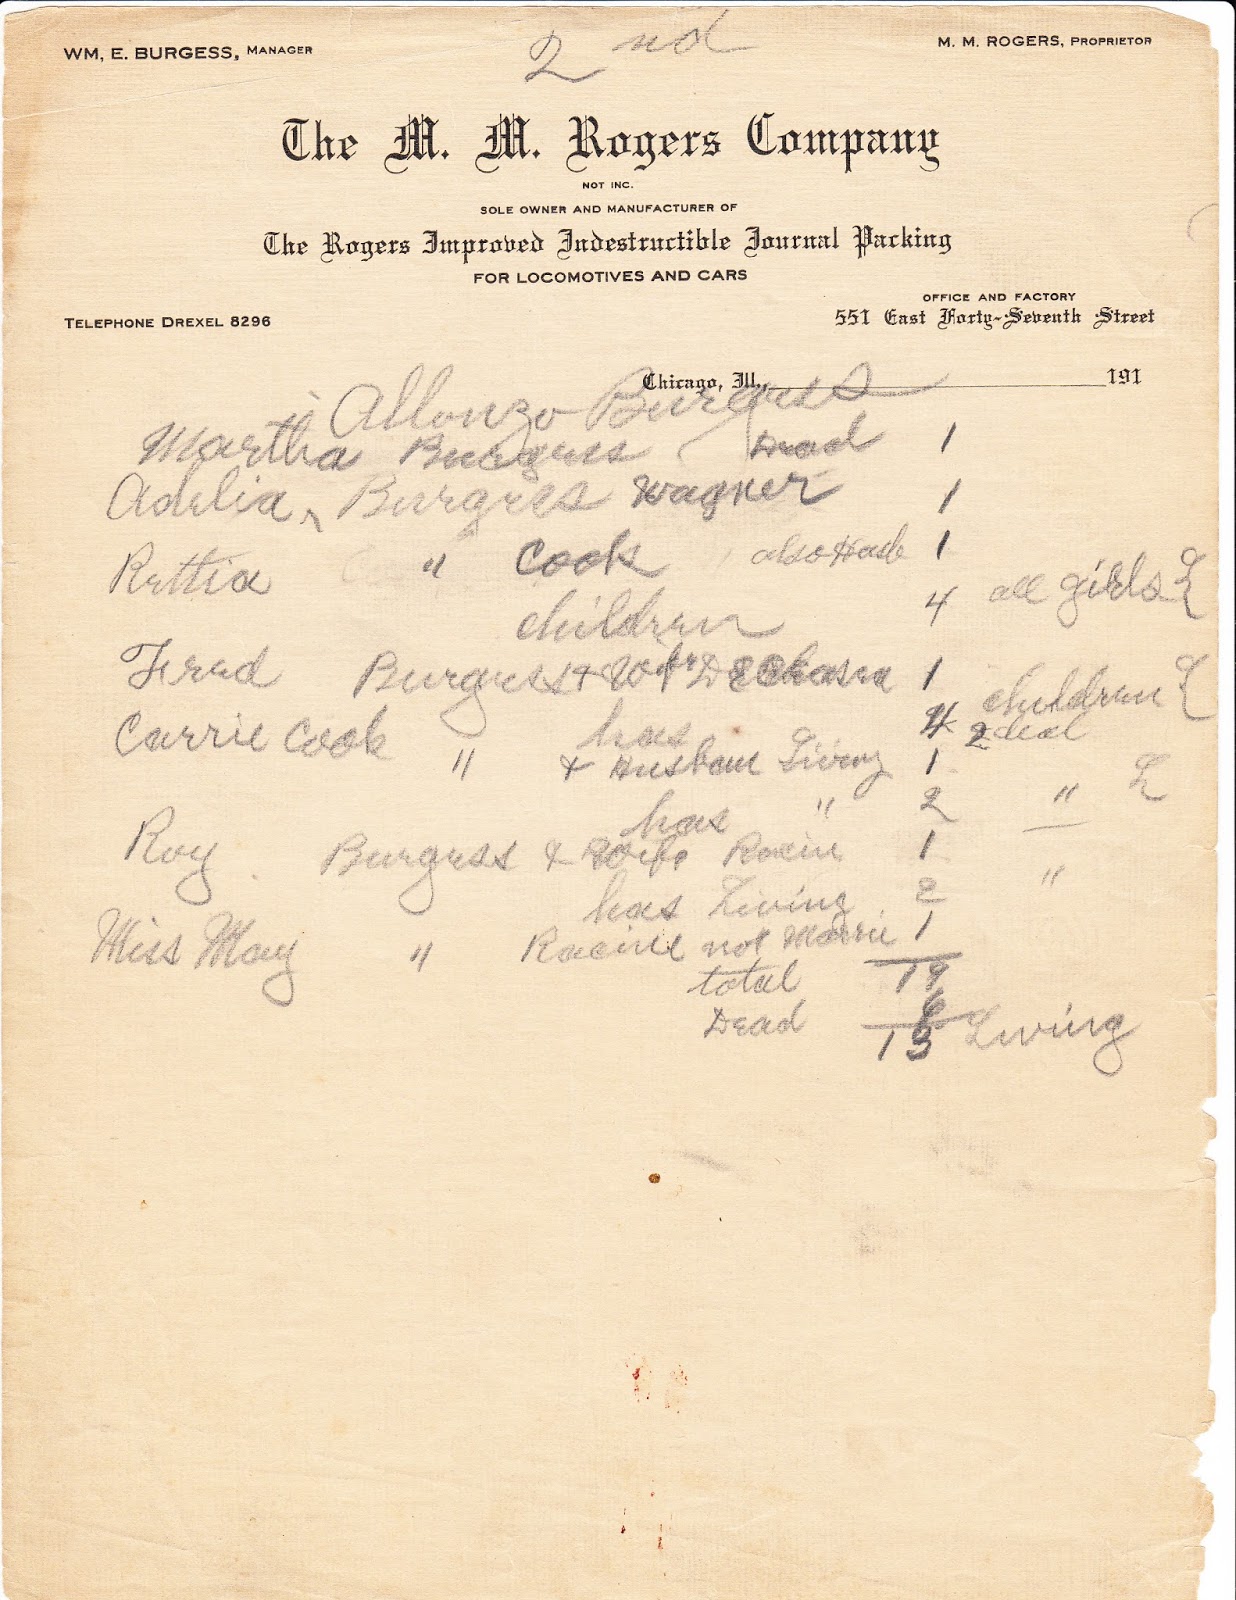 2 nd
WM, E. BURGESS, MANAGER
M. M. ROGERS, PROPRIETOR
The M. M. Rogers Company
NOT INC.
SOLE OWNER AND MANUFACTURER OF
The Rogers Improved Indestructible Journal Packing
FOR LOCOMOTIVES AND CARS
TELEPHONE DREXEL 8296
OFFICE AND FACTORY
551 East Forty-Seventh Street
Chicago, Ill., 191
Allonzo Burgess
Martha Burgess Dead 1
Adelia Burgess Wagner 1
Rettia " Cook also 1
children 4 all girls L
Fred Burgess + Wife 1
has 4 children L
2 dead
Carrie Cook " + Living 1
has " 2 " L
Roy Burgess & Wife Racine 1
has Living 2 "
Miss May " Racine not Marrie 1
total 19
Dead 6
13 Living